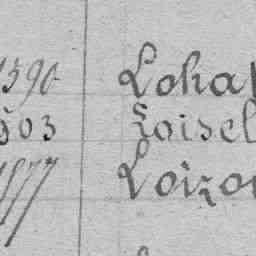 1390 Loha
503 Loisel
1877 Loizo